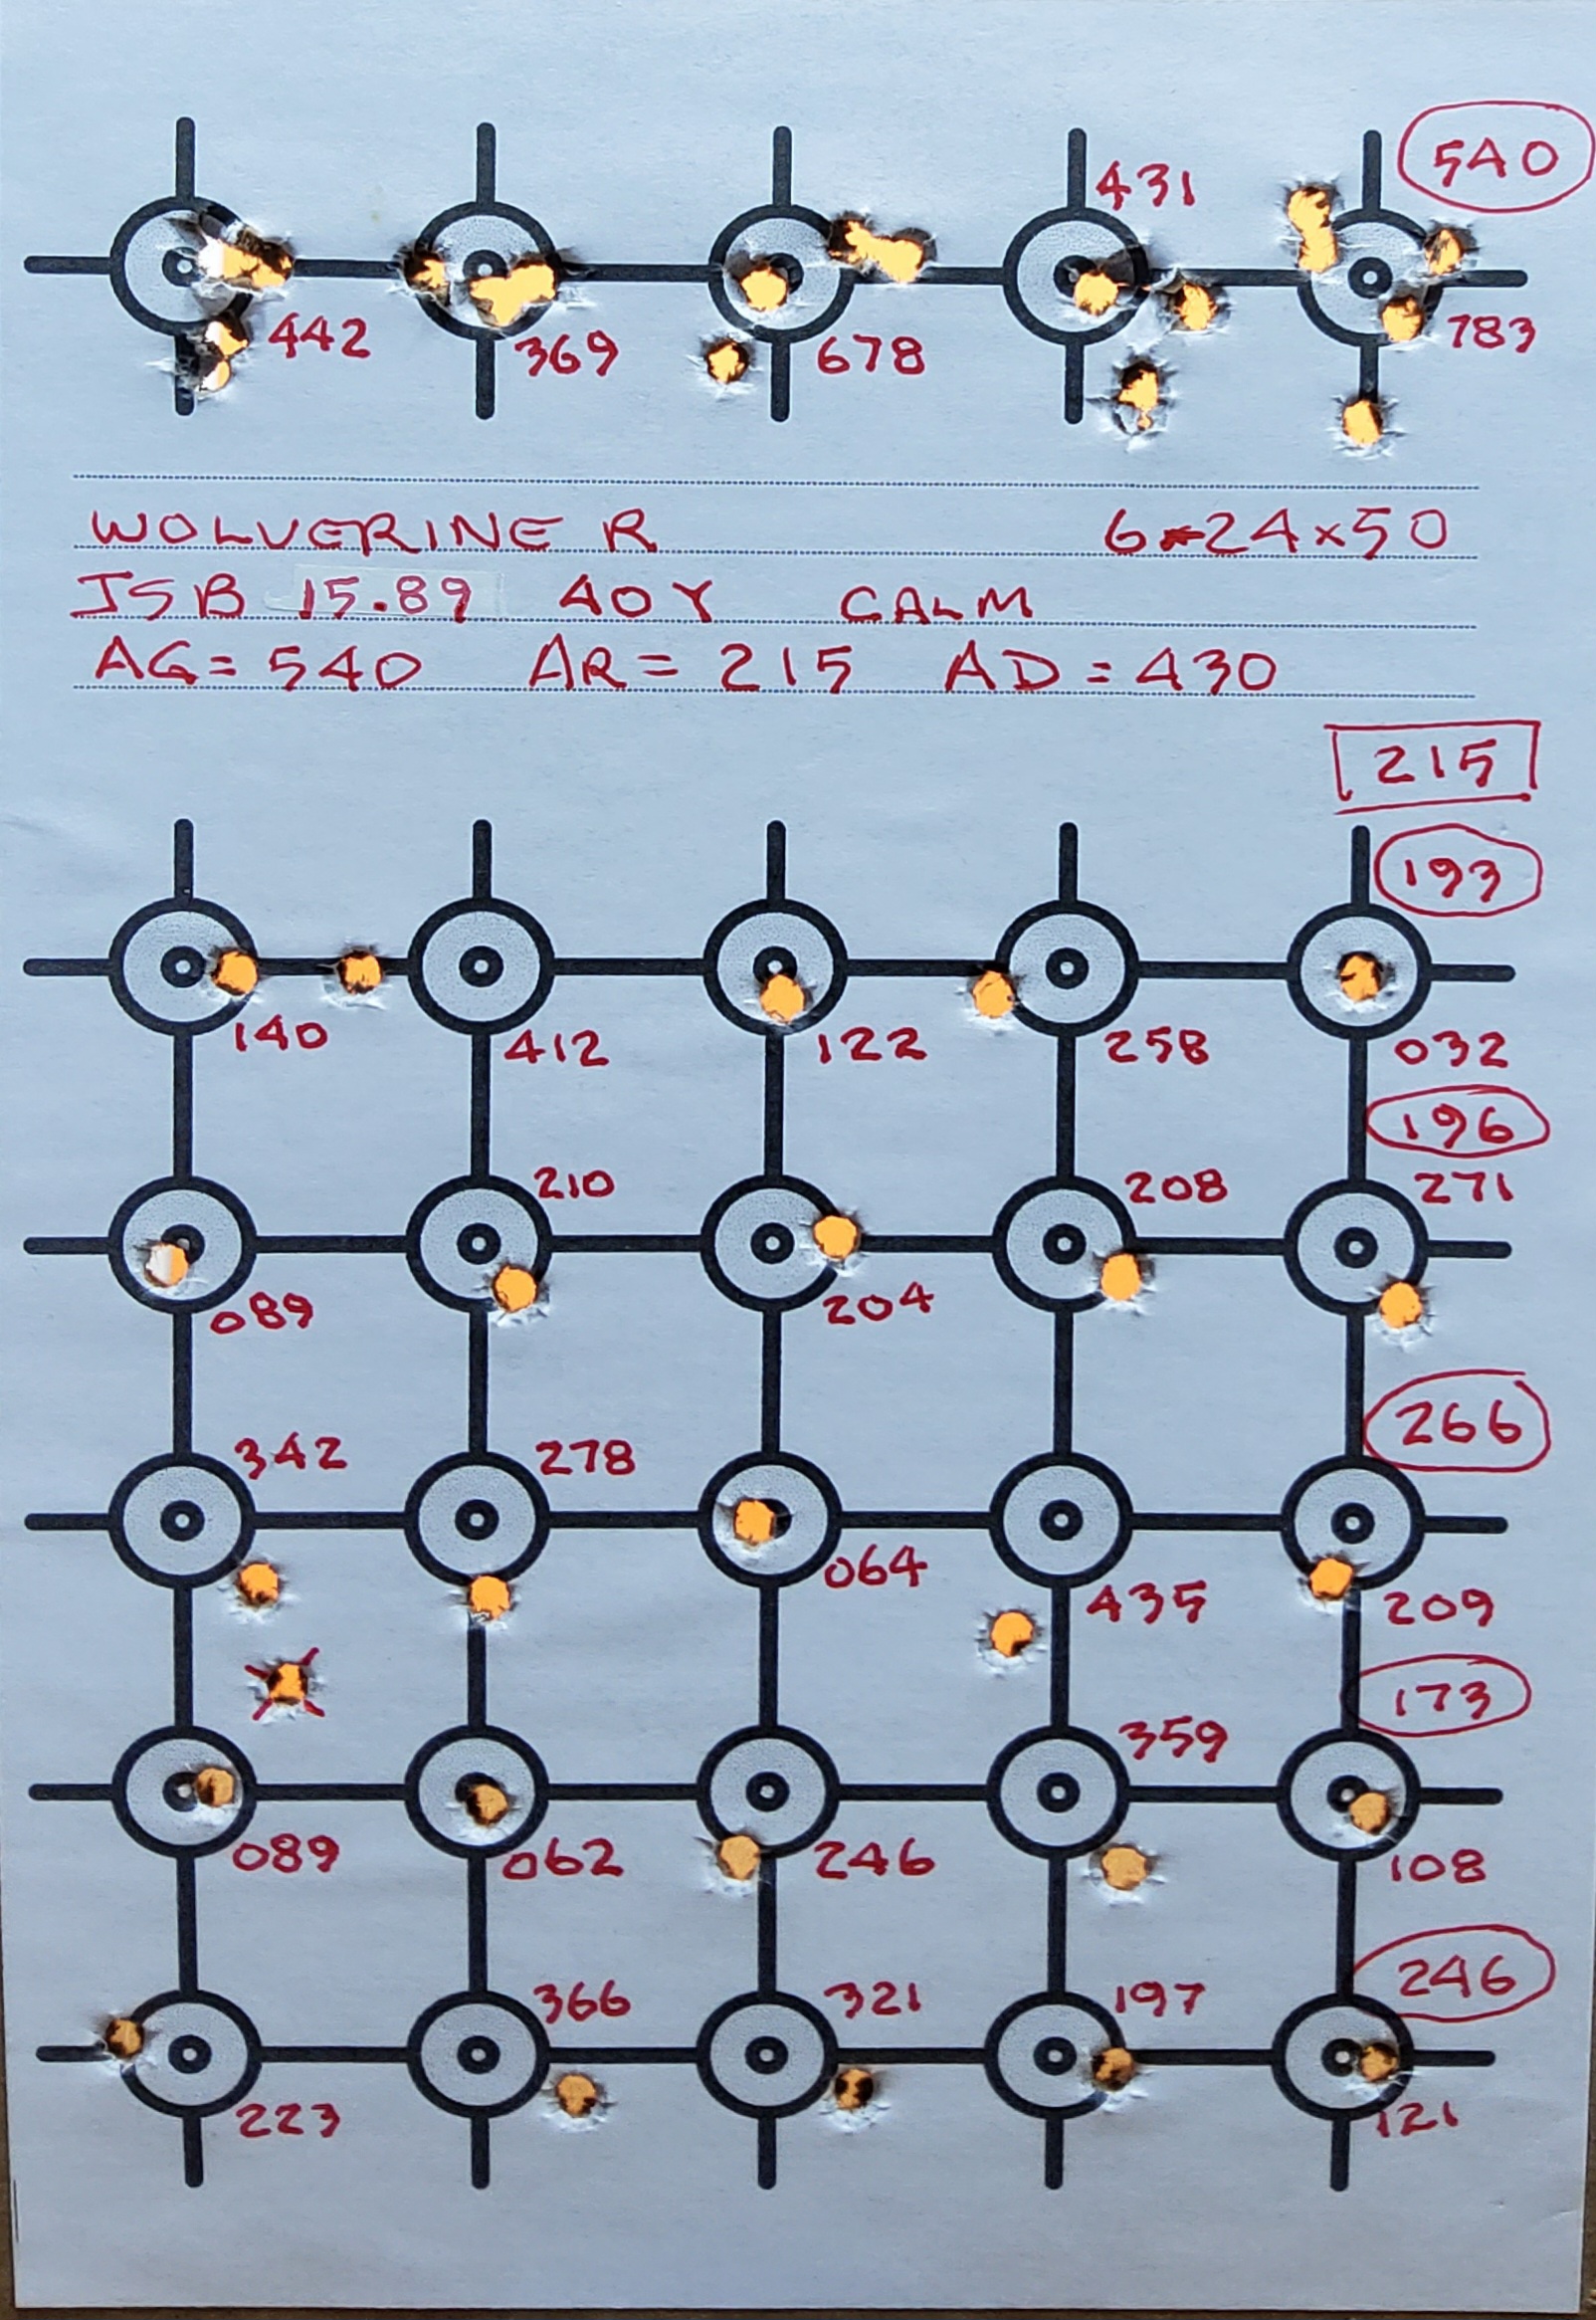 431 540
442 369 678 783
WOLVERINE R 6-24x50
JSB 15.89 40Y CALM
AG= 540 AR= 215 AD= 430
215
193
140 412 122 258 032
196
210 208 271
089 204
266
342 278
064 435 209
173
359
089 062 246 108
246
366 321 197
223 121